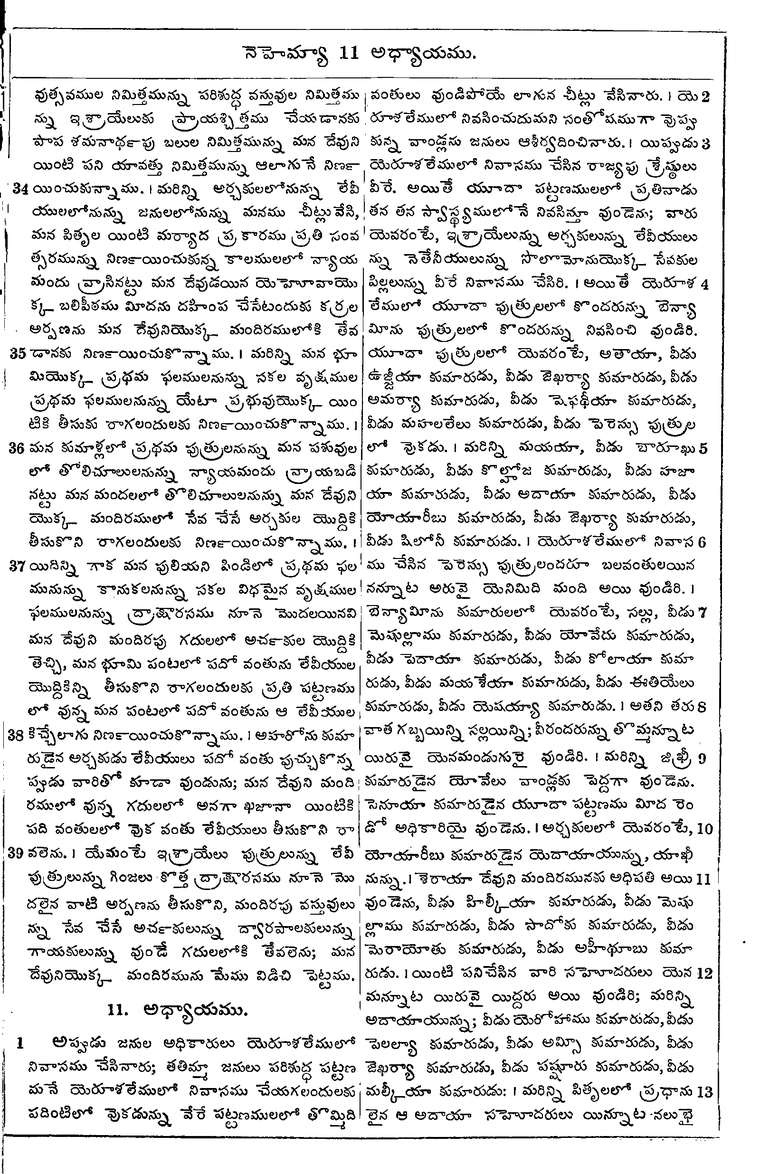 నెహెమ్యా 11 అధ్యాయము.
వుత్సవముల నిమిత్తమున్ను పరిశుద్ధ వస్తువుల నిమిత్తము
న్ను ఇశ్రాయేలుకు ప్రాయశ్చిత్తము చేయడానకు
పాప శమనార్థపు బలుల నిమిత్తమున్ను మన దేవుని
యింటి పని యావత్తు నిమిత్తమున్ను ఆలాగునే నిర్ణ
34 యించుకున్నాము. । మరిన్ని అర్చకులలోనున్ను లేవీ
యులలోనున్ను జనులలోనున్ను మనము చీట్లువేసి,
మన పితృల యింటి మర్యాద ప్రకారము ప్రతి సంవ
త్సరమున్ను నిర్ణయించుకున్న కాలములలో న్యాయ
మందు వ్రాసినట్టు మన దేవుడయిన యెహోవాయొ
క్క బలిపీఠము మీదను దహింప చేసేటందుకు కర్రల
అర్పణను మన దేవునియొక్క మందిరములోకి తేవ
35 డానకు నిర్ణయించుకొన్నాము. । మరిన్ని మన భూ
మియొక్క ప్రథమ ఫలములనున్ను సకల వృక్షముల
ప్రథమ ఫలములనున్ను యేటా ప్రభువుయొక్క యిం
టికి తీసుకు రాగలందులకు నిర్ణయించుకొన్నాము. ।
36 మన కుమాళ్లలో ప్రథమ పుత్రులనున్ను మన పశువుల
లో తొలిచూలులనున్ను న్యాయమందు వ్రాయబడి
నట్టు మన మందలలో తొలిచూలులనున్ను మన దేవుని
యొక్క మందిరములో సేవ చేసే అర్చకుల యొద్దికి
తీసుకొని రాగలందులకు నిర్ణయించుకొన్నాము. ।
37 యిదిన్ని గాక మన పులియని పిండిలో ప్రథమ ఫల
మునున్ను కానుకలనున్ను సకల విధమైన వృక్షముల
ఫలములనున్ను ద్రాక్షారసము నూనె మొదలయినవి
మన దేవుని మందిరపు గదులలో అర్చకుల యొద్దికి
తెచ్చి, మన భూమి పంటలో పదో వంతును లేవీయుల
యొద్దికిన్ని తీసుకొని రాగలందులకు ప్రతి పట్టణము
లో వున్న మన పంటలో పదో వంతును ఆ లేవీయుల
38 కిచ్చేలాగు నిర్ణయించుకొన్నాము. । అహరోను కుమా
రుడైన అర్చకుడు లేవీయులు పదో వంతు పుచ్చుకొన్న
ప్పుడు వారితో కూడా వుండును; మన దేవుని మంది
రములో వున్న గదులలో అనగా ఖజానా యింటికి
పది వంతులలో వొక వంతు లేవీయులు తీసుకొని రా
39 వలెను. । యేమంటే ఇశ్రాయేలు పుత్రులున్ను లేవీ
పుత్రులున్ను గింజలు కొత్త ద్రాక్షారసము నూనె మొ
దలైన వాటి అర్పణను తీసుకొని, మందిరపు వస్తువులు
న్ను సేవ చేసే అర్చకులున్ను ద్వారపాలకులున్ను
గాయకులున్ను వుండే గదులలోకి తేవలెను; మన
దేవునియొక్క మందిరమును మేము విడిచి పెట్టము.
11. అధ్యాయము.
1 అప్పుడు జనుల అధికారులు యెరూశలేములో
నివాసము చేసినారు; తతిమ్మా జనులు పరిశుద్ధ పట్టణ
మనే యెరూశలేములో నివాసము చేయగలందులకు
పదింటిలో వొకడున్ను వేరే పట్టణములలో తొమ్మిది
వంతులు వుండిపోయే లాగున చీట్లు వేసినారు. । యె 2
రూశలేములో నివసించుదుమని సంతోషముగా వొప్పు
కున్న వాండ్లను జనులు ఆశీర్వదించినారు. । యిప్పుడు 3
యెరూశలేములో నివాసము చేసిన రాజ్యపు శ్రేష్ఠులు
వీరే. అయితే యూదా పట్టణములలో ప్రతివాడు
తన తన స్వాస్థ్యములోనే నివసిస్తూ వుండెను; వారు
యెవరంటే, ఇశ్రాయేలున్ను అర్చకులున్ను లేవీయులు
న్ను నెతేనీయులున్ను సొలొమోనుయొక్క సేవకుల
పిల్లలున్ను వీరే నివాసము చేసిరి. । అయితే యెరూశ 4
లేములో యూదా పుత్రులలో కొందరున్ను బెన్యా
మీను పుత్రులలో కొందరున్ను నివసించి వుండిరి.
యూదా పుత్రులలో యెవరంటే, అతాయా, వీడు
ఉజ్జీయా కుమారుడు, వీడు జెఖర్యా కుమారుడు, వీడు
అమర్యా కుమారుడు, వీడు షెఫథీయా కుమారుడు,
వీడు మహలలేలు కుమారుడు, వీడు పెరెస్సు పుత్రుల
లో వొకడు. । మరిన్ని మయయా, వీడు బారూఖు 5
కుమారుడు, వీడు కొల్హోజ కుమారుడు, వీడు హజా
యా కుమారుడు, వీడు అదాయా కుమారుడు, వీడు
యోయారీబు కుమారుడు, వీడు జెఖర్యా కుమారుడు,
వీడు షిలోనీ కుమారుడు. । యెరూశలేములో నివాస 6
ము చేసిన పెరెస్సు పుత్రులందరూ బలవంతులయిన
నన్నూట అరువై యెనిమిది మంది అయి వుండిరి. ।
బెన్యామీను కుమారులలో యెవరంటే, సల్లు, వీడు 7
మెషుల్లాము కుమారుడు, వీడు యోవేదు కుమారుడు,
వీడు పెదాయా కుమారుడు, వీడు కోలాయా కుమా
రుడు, వీడు మయశేయా కుమారుడు, వీడు ఈతియేలు
కుమారుడు, వీడు యెషయ్యా కుమారుడు. । అతని తరు 8
వాత గబ్బయిన్ని సల్లయిన్ని; వీరందరున్ను తొమ్మన్నూట
యిరువై యెనమండుగురై వుండిరి. । మరిన్ని జిఖ్రీ 9
కుమారుడైన యోవేలు వాండ్లకు పెద్దగా వుండెను.
సెనూయా కుమారుడైన యూదా పట్టణము మీద రెం
డో అధికారియై వుండెను. । అర్చకులలో యెవరంటే, 10
యోయారీబు కుమారుడైన యెదాయాయున్ను, యాఖీ
నున్ను. । శెరాయా దేవుని మందిరమునకు అధిపతి అయి 11
వుండెను, వీడు హిల్కీయా కుమారుడు, వీడు మెషు
ల్లాము కుమారుడు, వీడు సాదోకు కుమారుడు, వీడు
మెరాయోతు కుమారుడు, వీడు అహీథూబు కుమా
రుడు. । యింటి పనిచేసిన వారి సహోదరులు యెన 12
మన్నూట యిరువై యిద్దరు అయి వుండిరి; మరిన్ని
అదాయాయున్ను; వీడు యెరోహాము కుమారుడు, వీడు
పెలల్యా కుమారుడు, వీడు అమ్సీ కుమారుడు, వీడు
జెఖర్యా కుమారుడు, వీడు పష్హూరు కుమారుడు, వీడు
మల్కీయా కుమారుడు: । మరిన్ని పితృలలో ప్రధాను 13
లైన ఆ అదాయా సహోదరులు యిన్నూట నలుభై